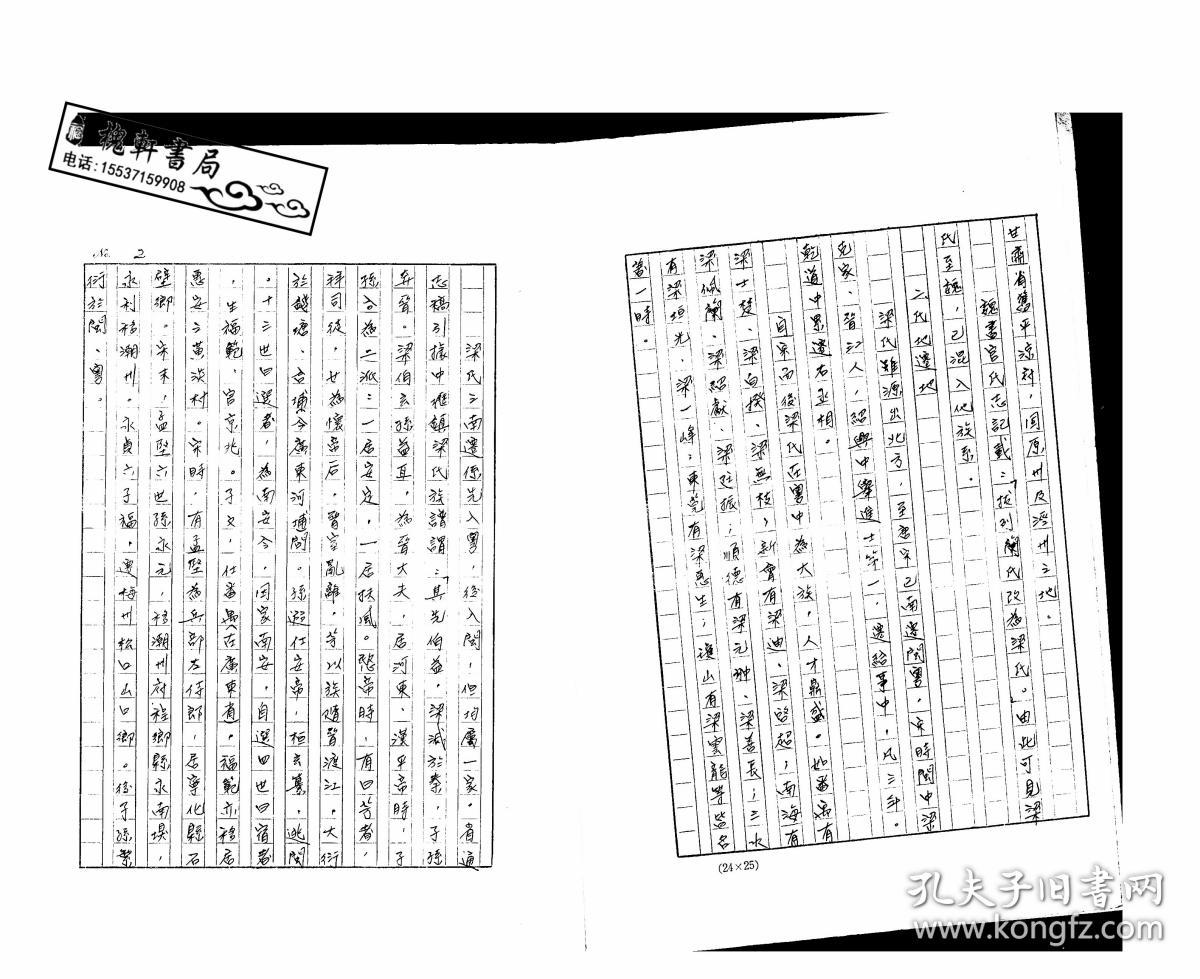 槐軒書局
电话:15537159908
甘肅省舊平涼府,固原州及涇州之地。
魏書官氏志記載:「拔列蘭氏改為梁氏。」由此可見梁
氏至魏,已混入他族系。
二氏地遷地
梁氏雖源出北方,至唐宋已南遷閩粵,宋時閩中梁
克家,晉江人,紹興中舉進士第一,遷給事中,凡三年。
乾道中累遷右丞相。
自宋而後梁氏在粵中為大族,人才鼎盛。如番禺有
梁士楚、梁白揆、梁無技;新會有梁迪、梁啓超;南海有
梁佩蘭、梁紹獻、梁廷振;順德有梁元翀、梁善長;三水
有梁垣光、梁一峰;東莞有梁憲生;瓊山有梁雲龍等皆名
當一時。
(24×25)
No. 2
梁氏之南遷係先入粵,後入閩,但均屬一家。省通
志稿引據中堆鎮梁氏族譜謂:「其先伯益,梁滅於秦,子孫
奔晉。梁伯玄孫益耳,為晉大夫,居河東、漢平帝時,子
孫分為二派:一居安定,一居扶風。愍帝時,有曰芳者,
祥司後,女為懷帝后,晉室亂離,芳以族隨晉渡江,大衍
於錢塘、合埔今廣東河埔間。孫遐仕安帝,桓玄篡,逃閩
。十三世曰選者,為南安令,因家南安,自選四世曰宿者
,生福範,官京兆。子文,仕番禺在廣東省。福範亦移居
惠安之黃淡村。宋時,有孟堅為兵部左侍郎,居寧化縣石
壁鄉。宋末,孟堅六世孫永元,移潮州府程鄉縣永南堤,
永利移潮州。永貞六子福,遷梅州松口山口鄉。後子孫繁
衍於閩、粵。
孔夫子旧书网
www.kongfz.com